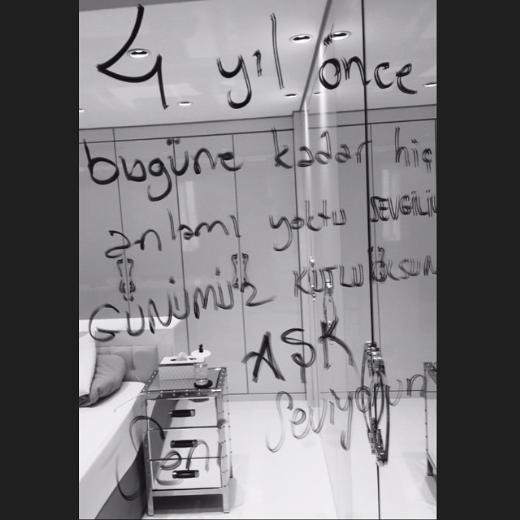 4 yıl önce
bugüne kadar hiç
anlamı yoktu SEVGİLİ
GÜNÜMÜZ KUTLU OLSUN
AŞK
Seni Seviyorum